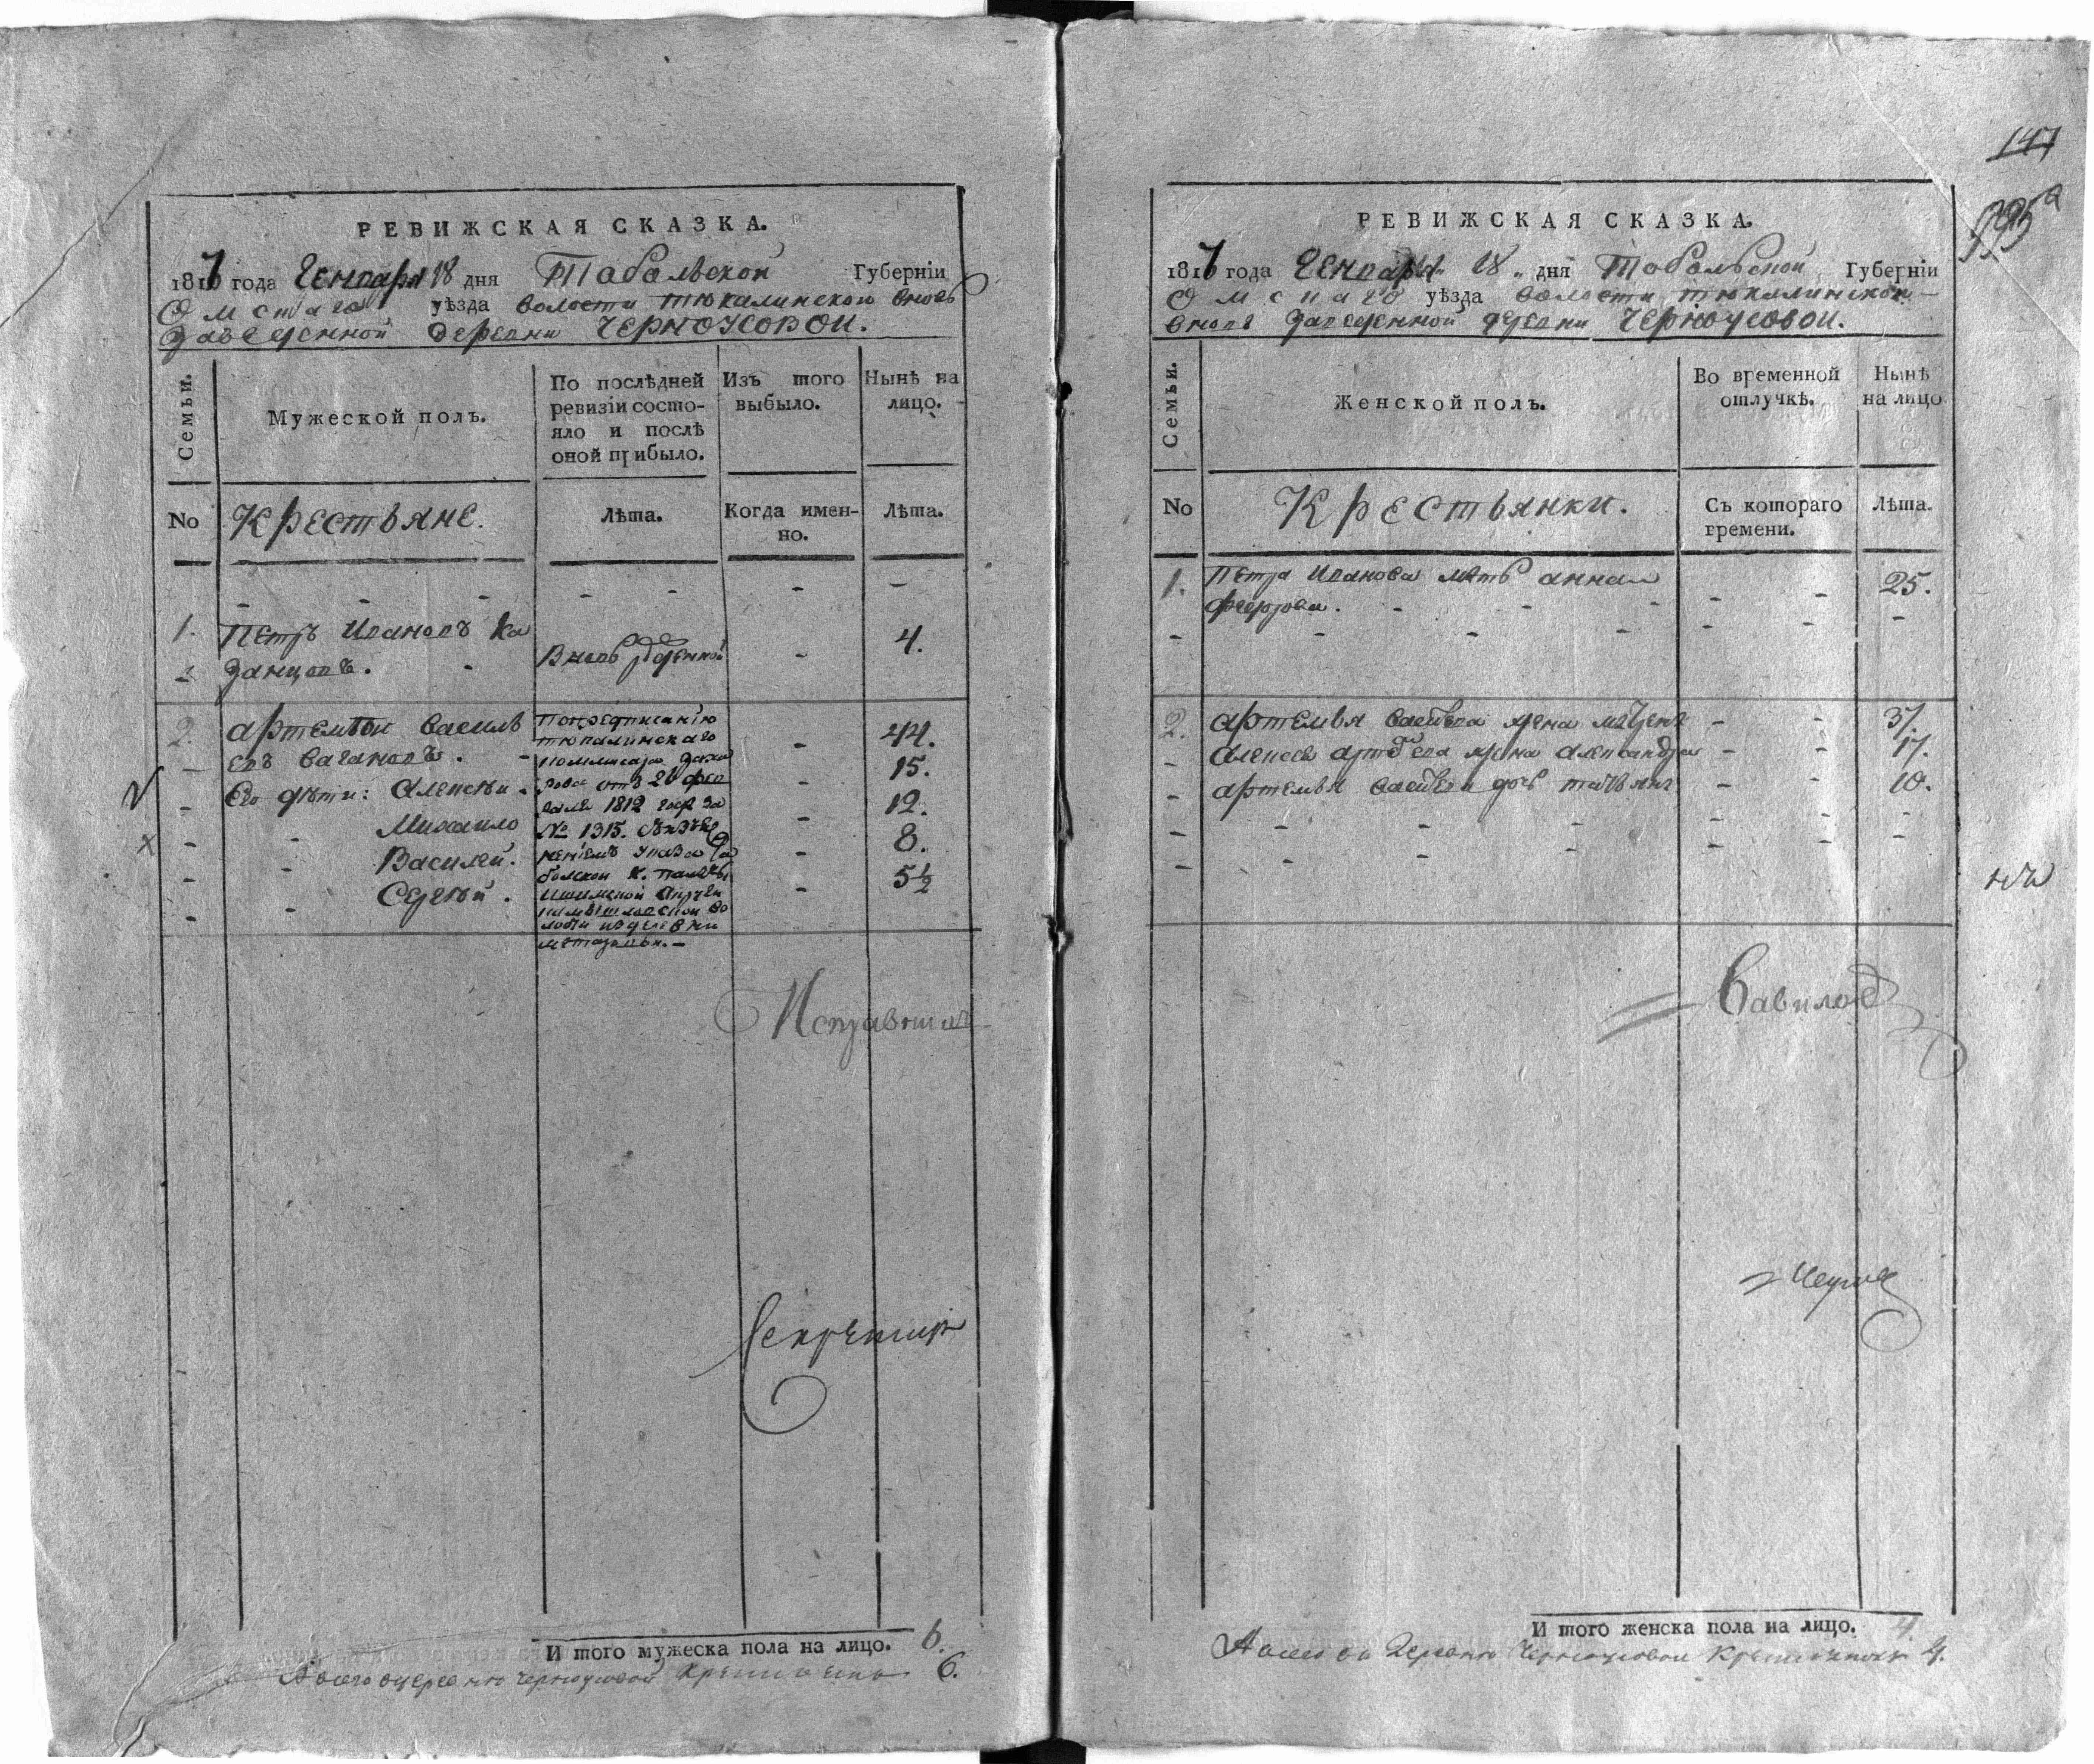 РЕВИЖСКАЯ СКАЗКА.
1817 года Генваря 18 дня Тобольской Губерніи
Омскаго уѣзда волости тюкалинской вновь
Заведенной деревни ЧЕРНОУСОВОЙ.
Семьи.
Мужеской полъ.
По послѣдней ревизіи состо-
яло и послѣ
оной прибыло.
Изъ того
выбыло.
Нынѣ на
лицо.
No
Крестьяне.
Лѣта.
Когда имен-
но.
Лѣта.
1. Петръ Ивановъ Ка
занцовъ.
Вновь
4.
2. Артемѣй Василь
евъ Вагановъ.
44.
Его дѣти: Алексѣй.
15.
Михаило
12.
Василей.
8.
Сергѣй.
5½
По предписанію
тюкалинскаго
комисара
рова отъ 20 фев
раля 1812 года за
№ 1315.
указа То
больской К. палаты
Ишимской
волости из деревни
Исправникъ
Секретарь
И того мужеска пола на лицо. 6.
А всего в деревне Черноусовой Крестьянъ 6.
147
995а
РЕВИЖСКАЯ СКАЗКА.
1817 года Генваря 18 дня Тобольской Губерніи
Омскаго уѣзда волости тюкалинской
вновь Заведенной деревни ЧЕРНОУСОВОЙ.
Семьи.
Женской полъ.
Во временной
отлучкѣ.
Нынѣ
на лицо
No
Крестьянки.
Съ котораго
времени.
Лѣта.
1. Петра Иванова мать анна
25.
2. Артемья Васильева жена
37.
Алексея Артемьева жена Александра
17.
Артемья Васильева дочь татьяна
10.
Вавилов
И того женска пола на лицо. 4
А всего въ деревне Черноусовой Крестьянокъ 4.